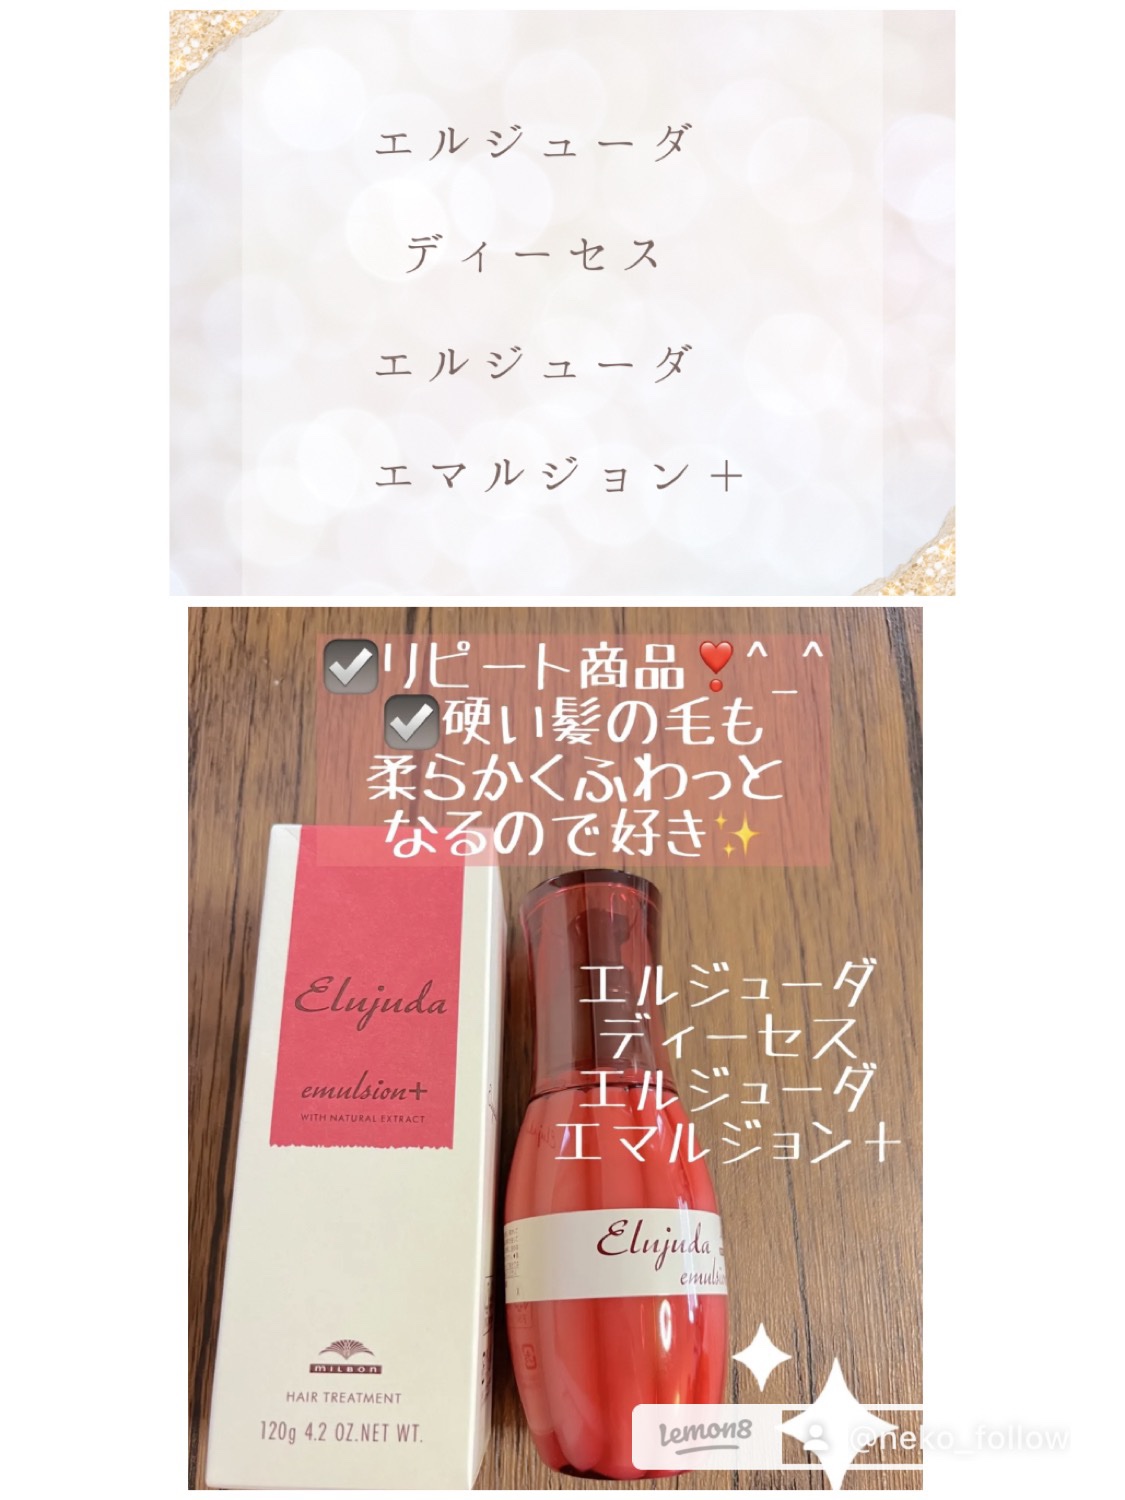 エルジューダ
ディーセス
エルジューダ
エマルジョン＋
☑リピート商品❣^_^
☑硬い髪の毛も
柔らかくふわっと
なるので好き✨
エルジューダ
ディーセス
エルジューダ
エマルジョン＋
Elujuda
emulsion+
WITH NATURAL EXTRACT
MILBON
HAIR TREATMENT
120g 4.2 OZ.NET WT.
Elujuda
emulsion
Lemon8 @neko_follow